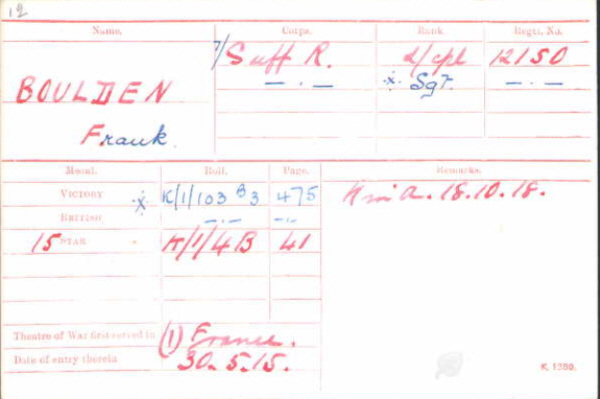 12
Name. Corps. Rank Regtl. No.
7/Suff R. L/Cpl 12150
BOULDEN — . — * Sgt. — . —
Frank
Medal. Roll. Page. Remarks.
VICTORY * K/1/103 B3 475 K in A. 18.10.18.
BRITISH — . — — . —
15 STAR K/1/4B 41
Theatre of War first served in (1) France.
Date of entry therein 30. 5. 15.
K. 1380.